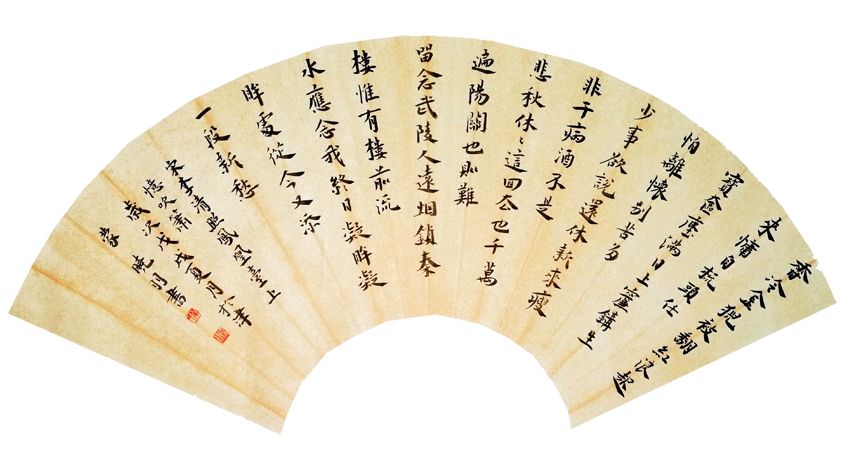 香冷金猊被翻紅浪起
來慵自梳頭任
寶奩塵滿日上簾鉤生
怕離懷別苦多
少事欲說還休新來瘦
非干病酒不是
悲秋休〻這回去也千萬
遍陽關也則難
留念武陵人遠烟鎖秦
樓惟有樓前流
水應念我終日凝眸凝
眸處從今又添
一段新愁
宋李清照鳳凰臺上
憶吹簫
歲次戊戌夏月於津
曉 書